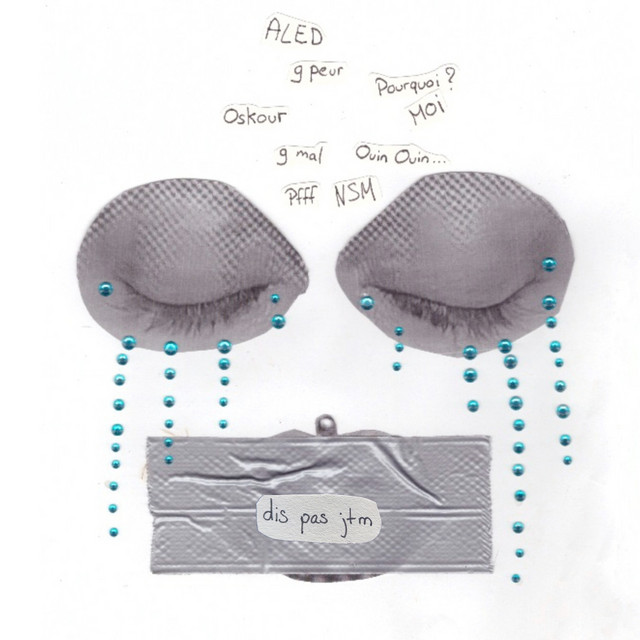 ALED
g peur
Pourquoi ?
MOI
Oskour
g mal
Ouin Ouin...
Pfff
NSM
dis pas jtm